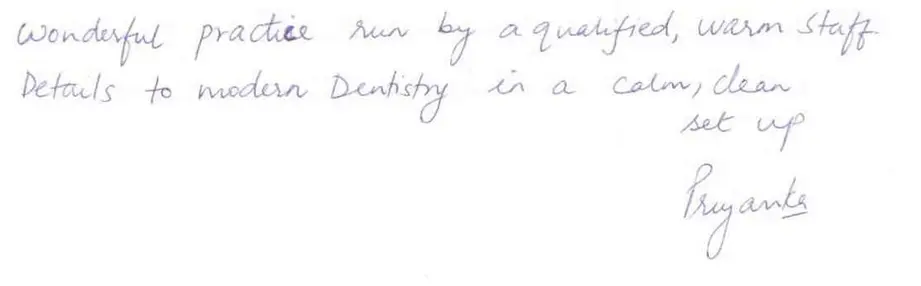 Wonderful practice run by a qualified, warm staff.
Details to modern Dentistry in a calm, clean
set up
Priyanka